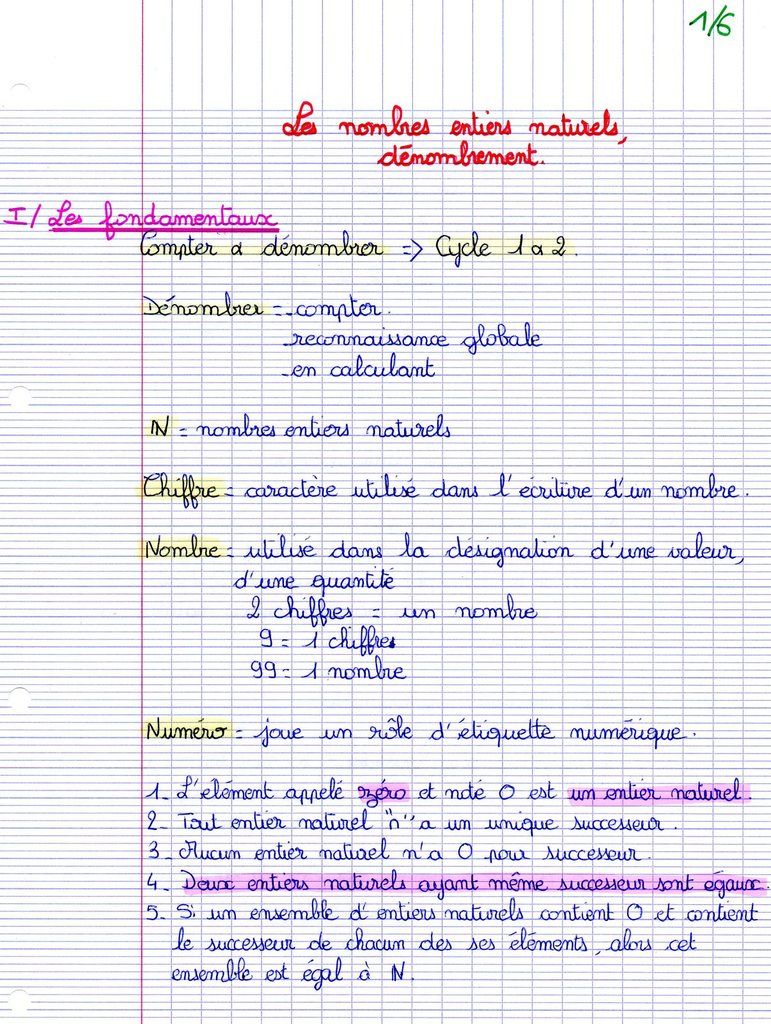 1/6
Les nombres entiers naturels,
dénombrement.
I/ Les fondamentaux
Compter a dénombrer => Cycle 1 a 2.
Dénombrer = -compter.
-reconnaissance globale
-en calculant
N = nombres entiers naturels
Chiffre = caractère utilisé dans l'écriture d'un nombre.
Nombre = utilisé dans la désignation d'une valeur,
d'une quantité
2 chiffres = un nombre
9 = 1 chiffres
99 = 1 nombre
Numéro = joue un rôle d'étiquette numérique.
1_ L'elément appelé zéro et noté 0 est un entier naturel.
2_ Tout entier naturel "n" a un unique successeur.
3_ Aucun entier naturel n'a 0 pour successeur.
4_ Deux entiers naturels ayant même successeur sont égaux.
5_ Si un ensemble d'entiers naturels contient 0 et contient
le successeur de chacun des ses éléments, alors cet
ensemble est égal à N.